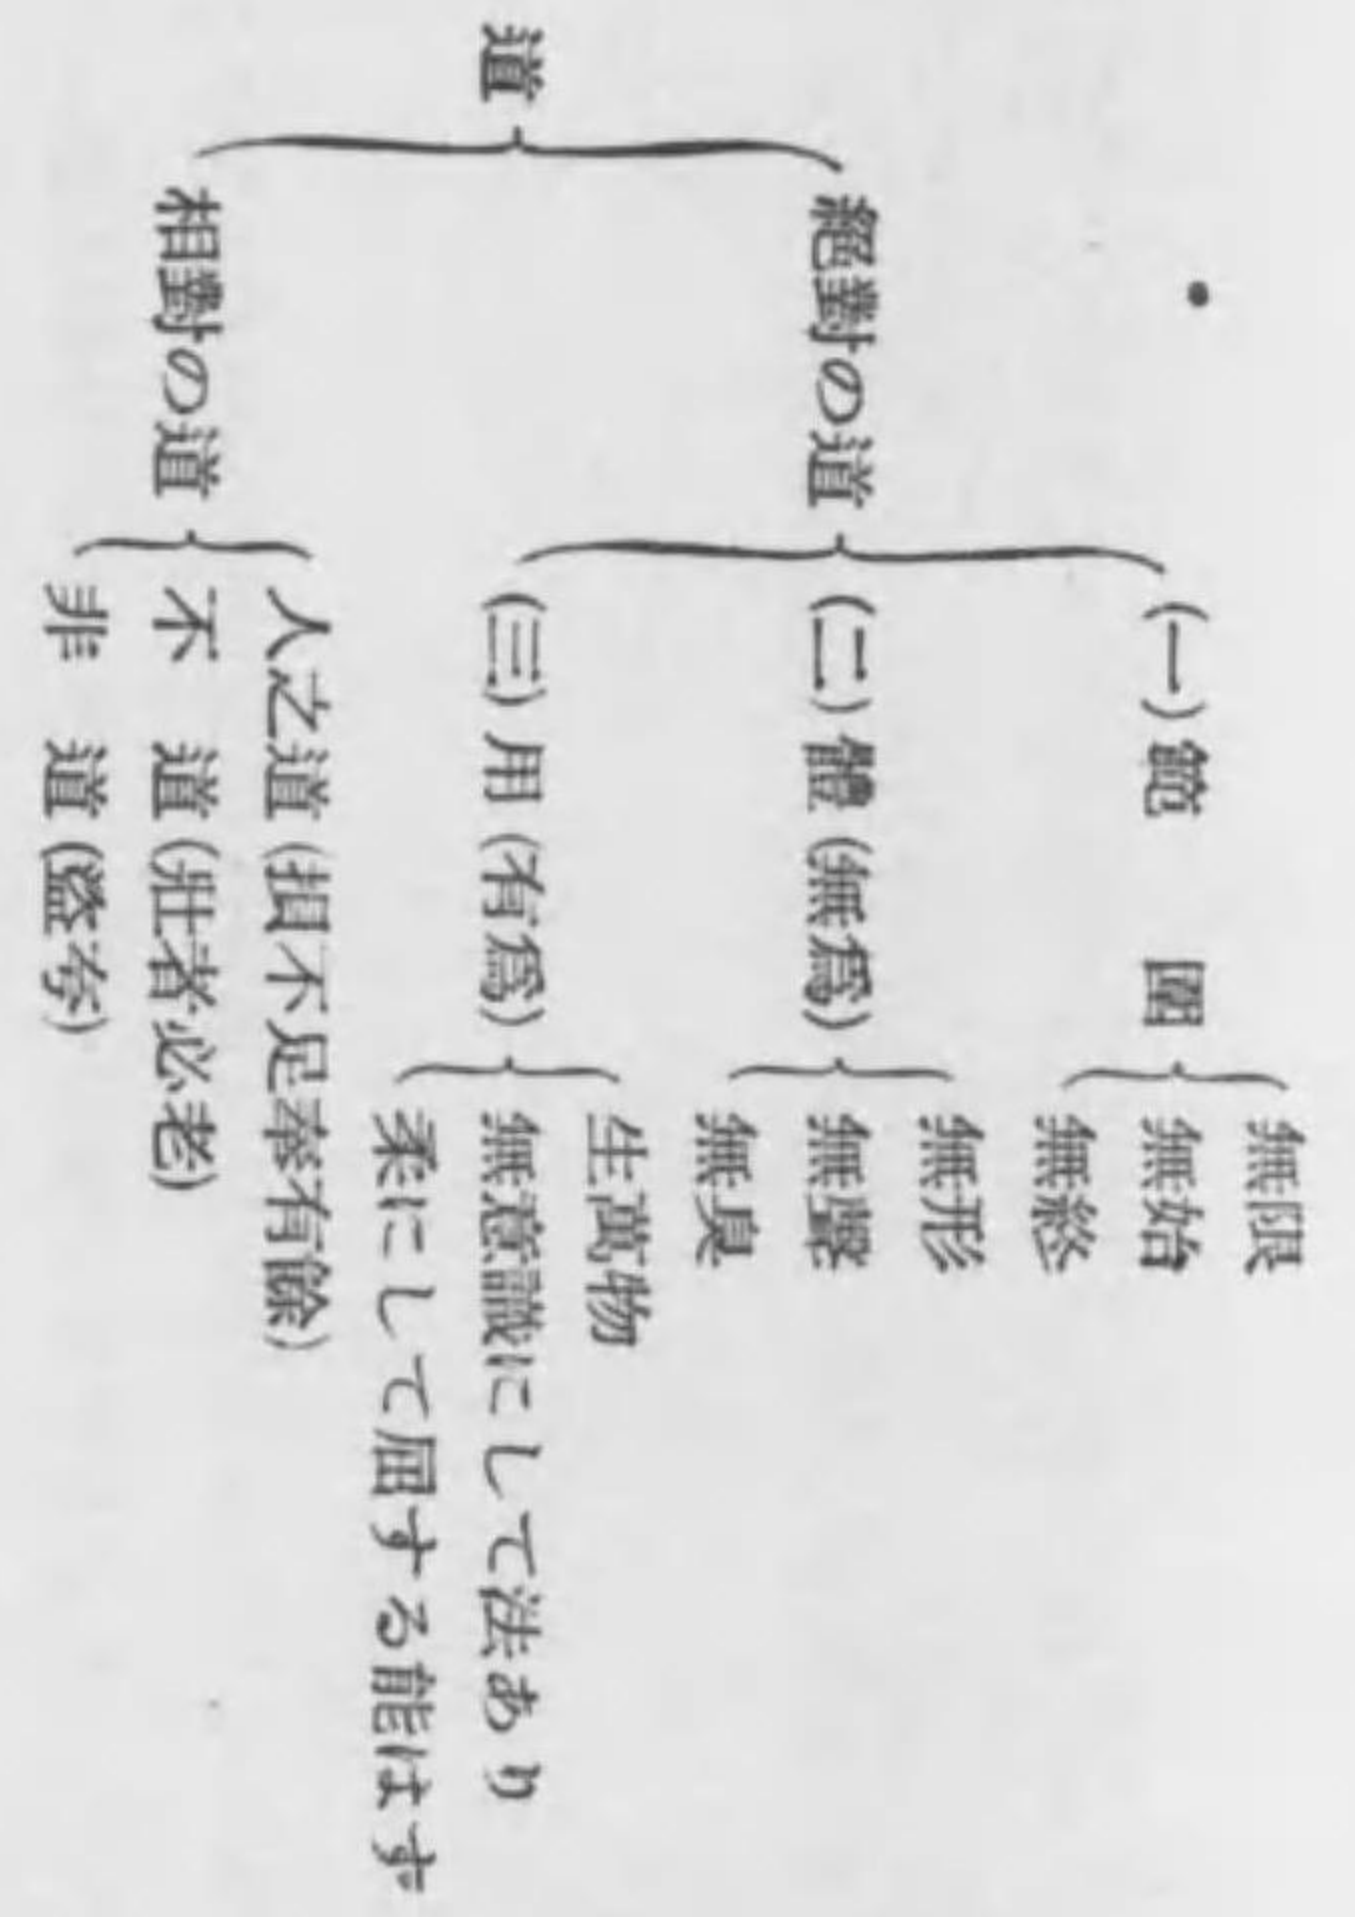 道
絕對の道
(一)範圍
無限
無始
無終
(二)體(無爲)
無形
無聲
無臭
(三)用(有爲)
生萬物
無意識にして法あり
柔にして屈する能はず
相對の道
人之道(損不足奉有餘)
不道(壯者必老)
非道(盜夸)